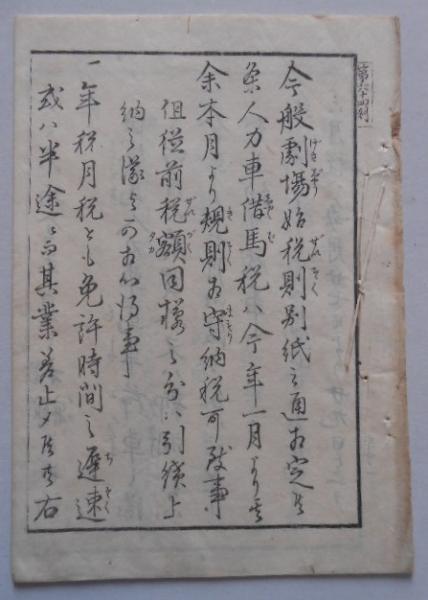 第六十四(号)
今般劇場始税則別紙之通相定候
条人力車借馬税ハ今年一月より其
余本月より規則相守納税可致事
但従前税額同様之分ハ引続上
納之儀と可相心得事
一年税月税とも免許時間之遅速
或ハ半途ニ而其業差止メ候共右